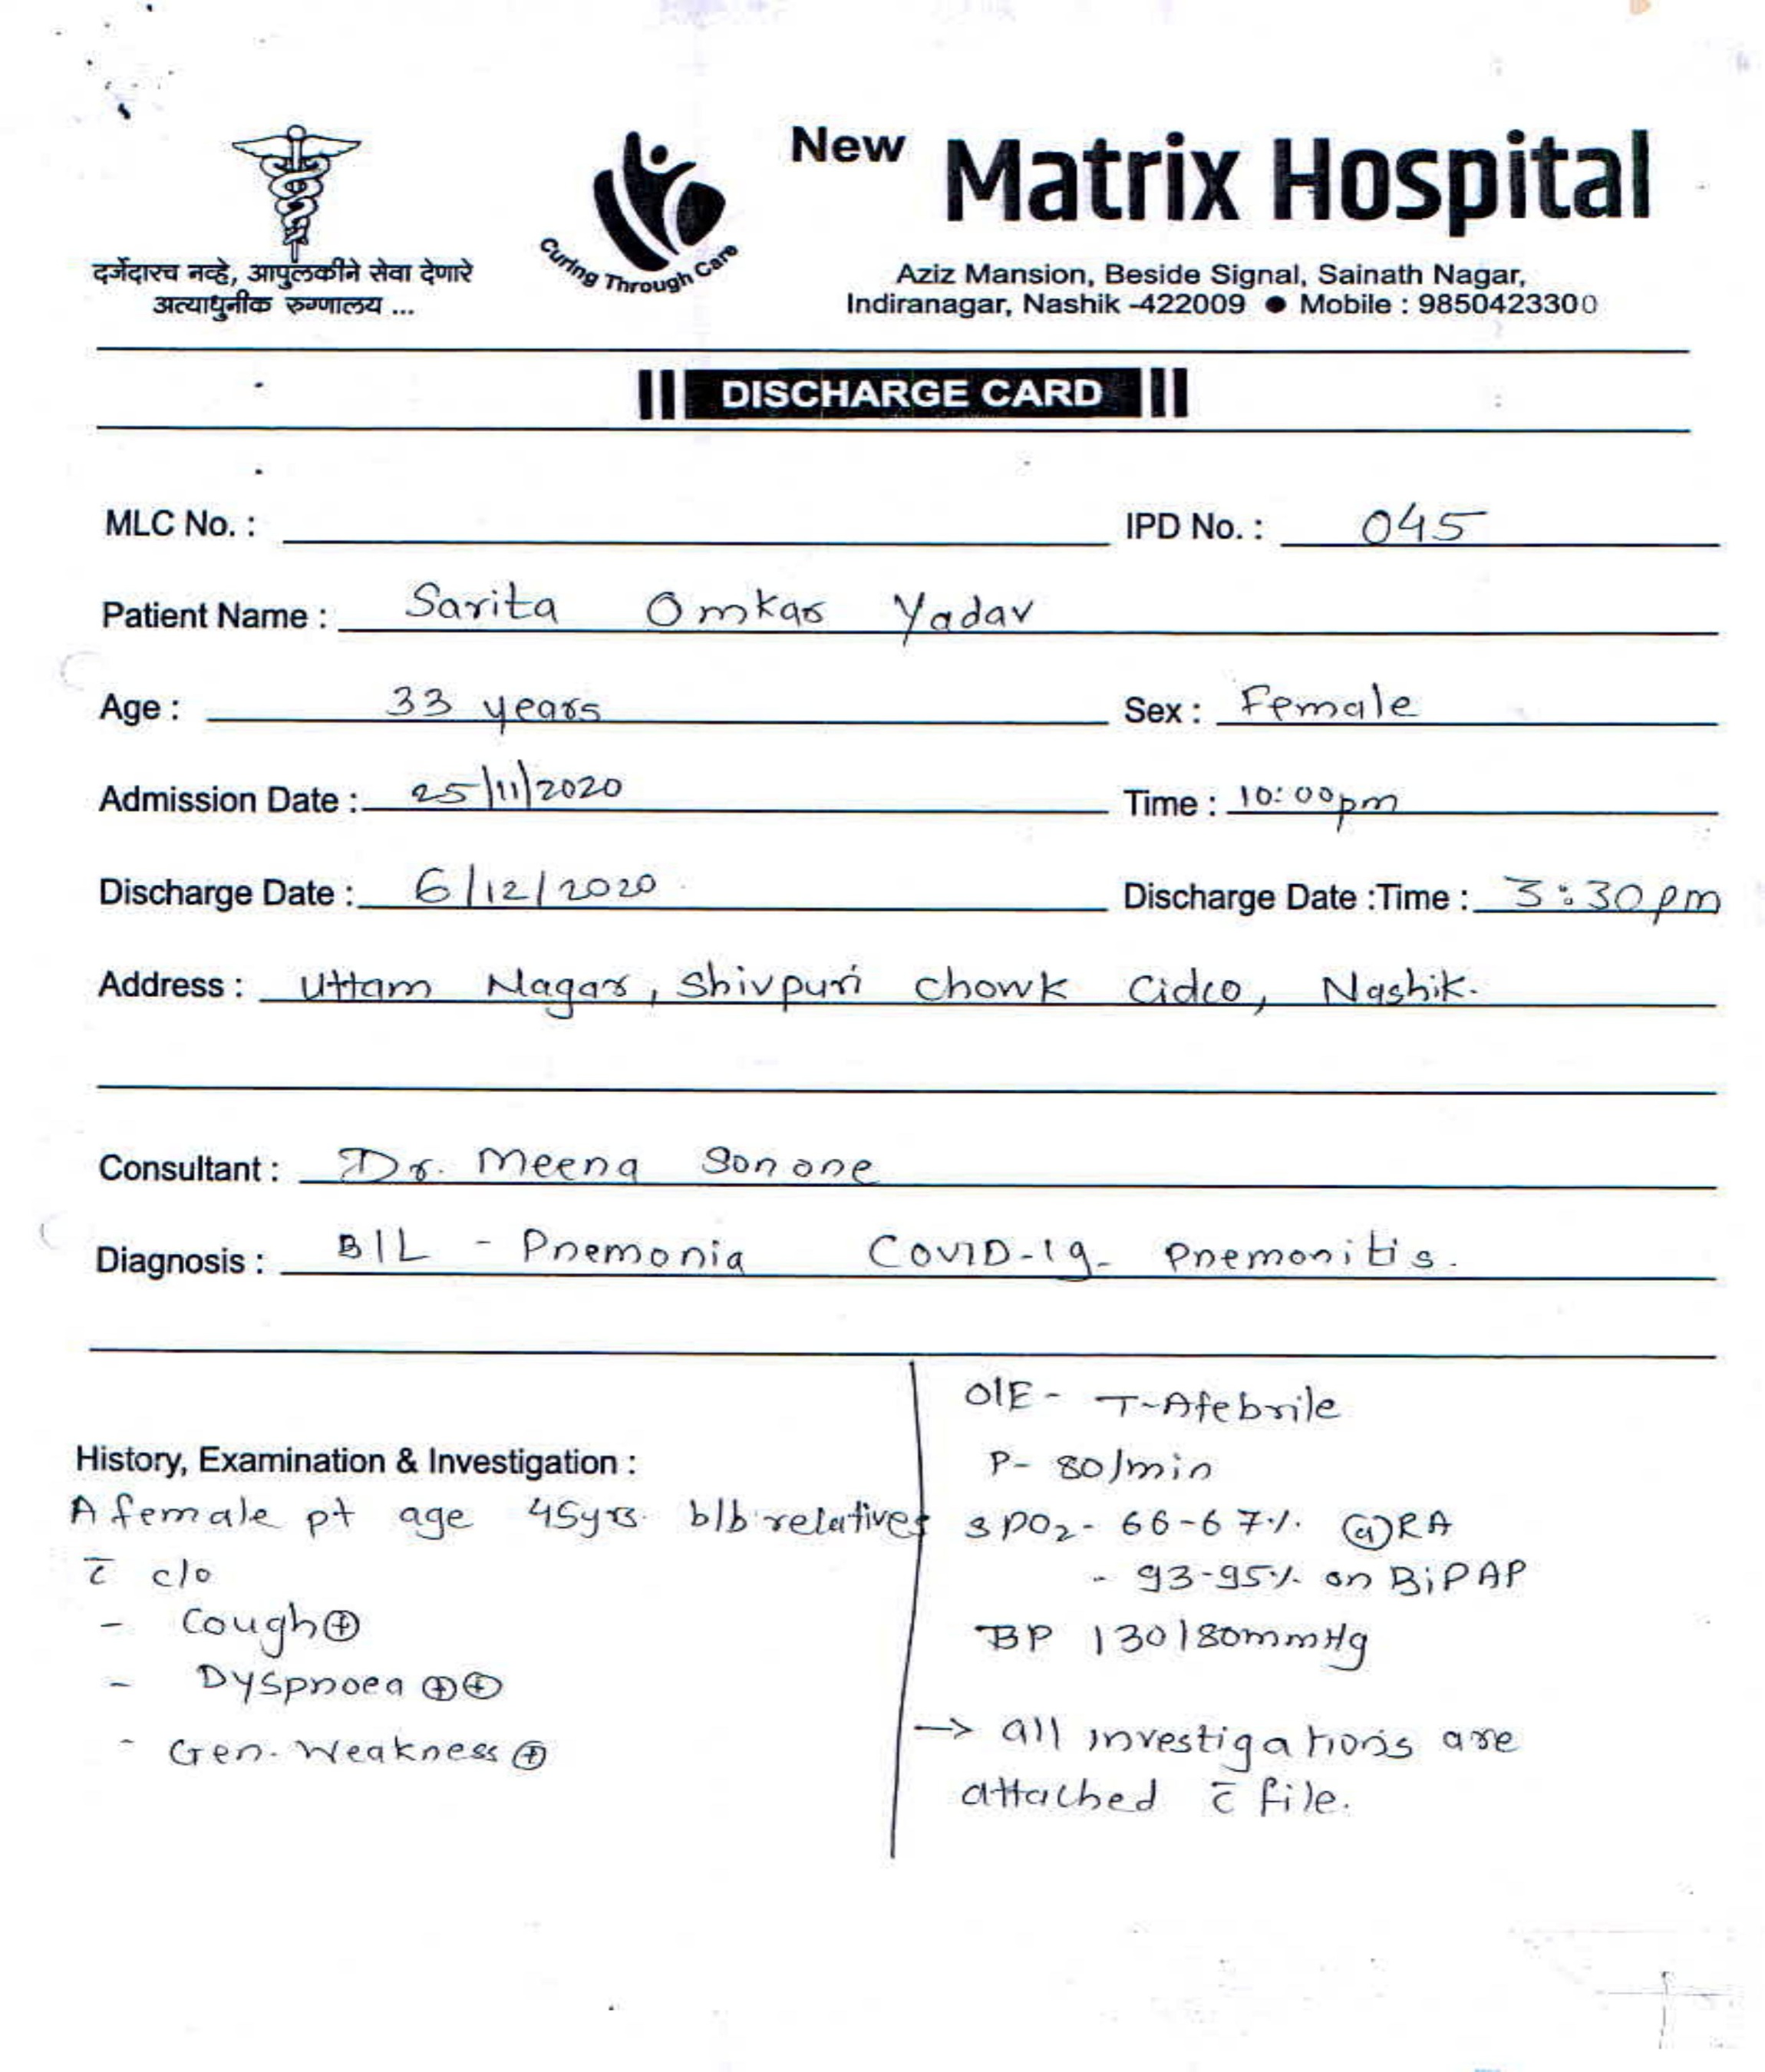 New Matrix Hospital
दर्जेदारच नव्हे, आपुलकीने सेवा देणारे
अत्याधुनीक रुग्णालय ...
Curing Through Care
Aziz Mansion, Beside Signal, Sainath Nagar,
Indiranagar, Nashik -422009 ● Mobile : 9850423300
DISCHARGE CARD
MLC No. : IPD No. : 045
Patient Name : Sarita Omkar Yadav
Age : 33 years Sex : Female
Admission Date : 25/11/2020 Time : 10:00pm
Discharge Date : 6/12/2020 Discharge Date :Time : 3:30pm
Address : Uttam Nagar, Shivpuri chowk Cidco, Nashik.
Consultant : Dr. Meena Sonone
Diagnosis : B/L - Pnemonia COVID-19- Pnemonitis.
History, Examination & Investigation :
A female pt age 45yrs. b/b relatives
c̄ c/o
- Cough ⊕
- Dyspnoea ⊕⊕
- Gen. Weakness ⊕
O/E - T-Afebrile
P- 80/min
SPO2- 66-67% @RA
- 93-95% on BiPAP
BP 130/80mmHg
→ all investigations are
attached c̄ file.